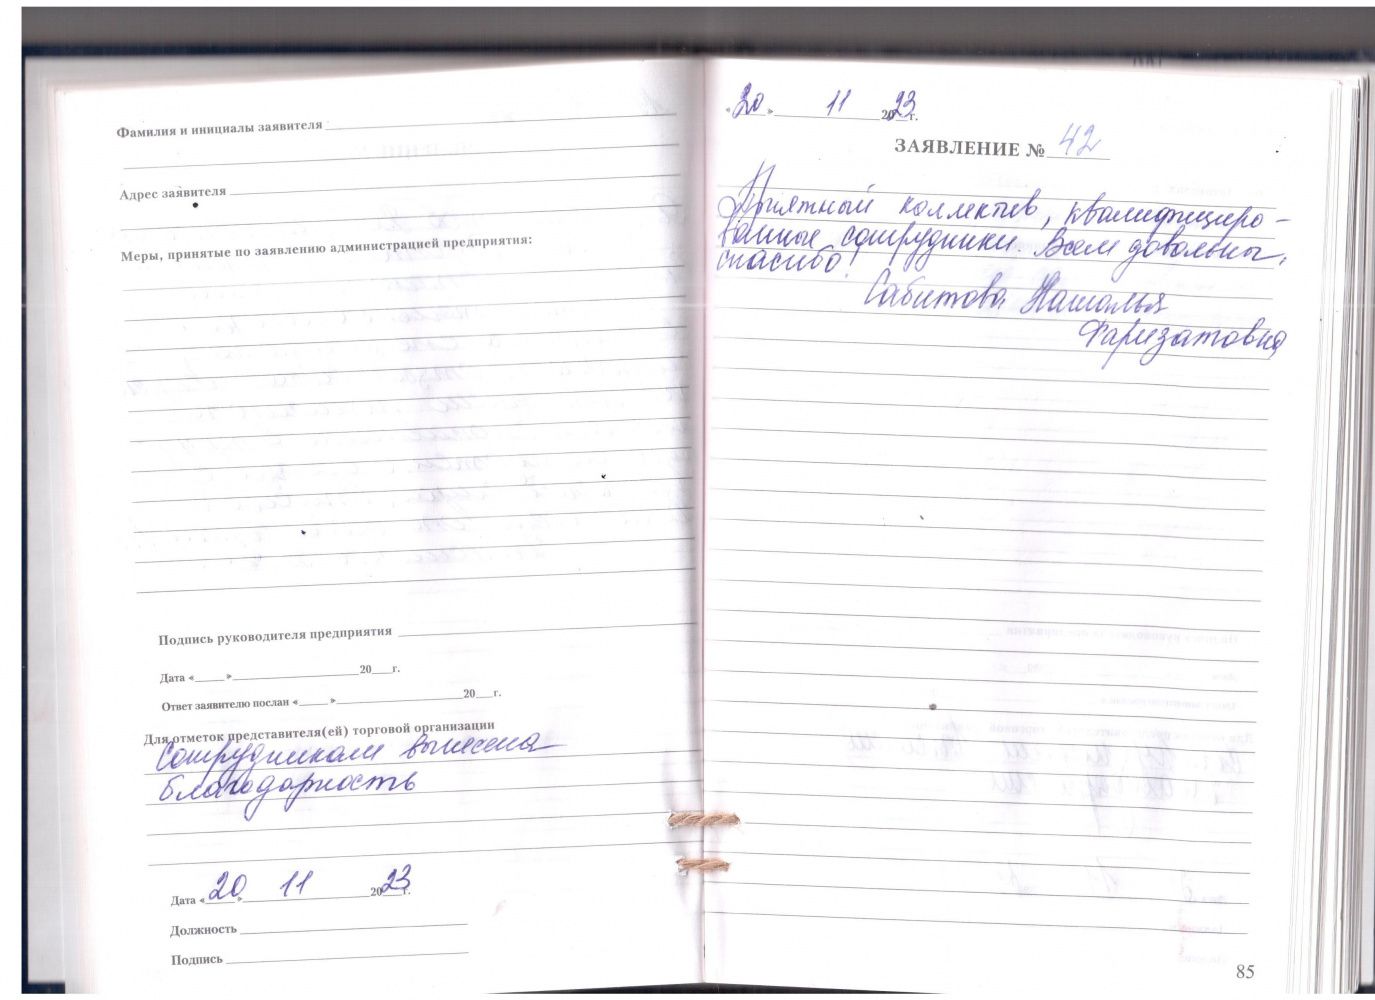 Фамилия и инициалы заявителя
Адрес заявителя
Меры, принятые по заявлению администрацией предприятия:
Подпись руководителя предприятия
Дата «___»___20___г.
Ответ заявителю послан «___»___20___г.
Для отметок представителя(ей) торговой организации
Сотрудникам вынесена
благодарность
Дата «20» 11 2023г.
Должность
Подпись
«20» 11 2023г.
ЗАЯВЛЕНИЕ № 42
Приятный коллектив, квалифициро-
ванные сотрудники. Всем довольны,
спасибо!
Сабитова Наталья
Фаризатовна
85